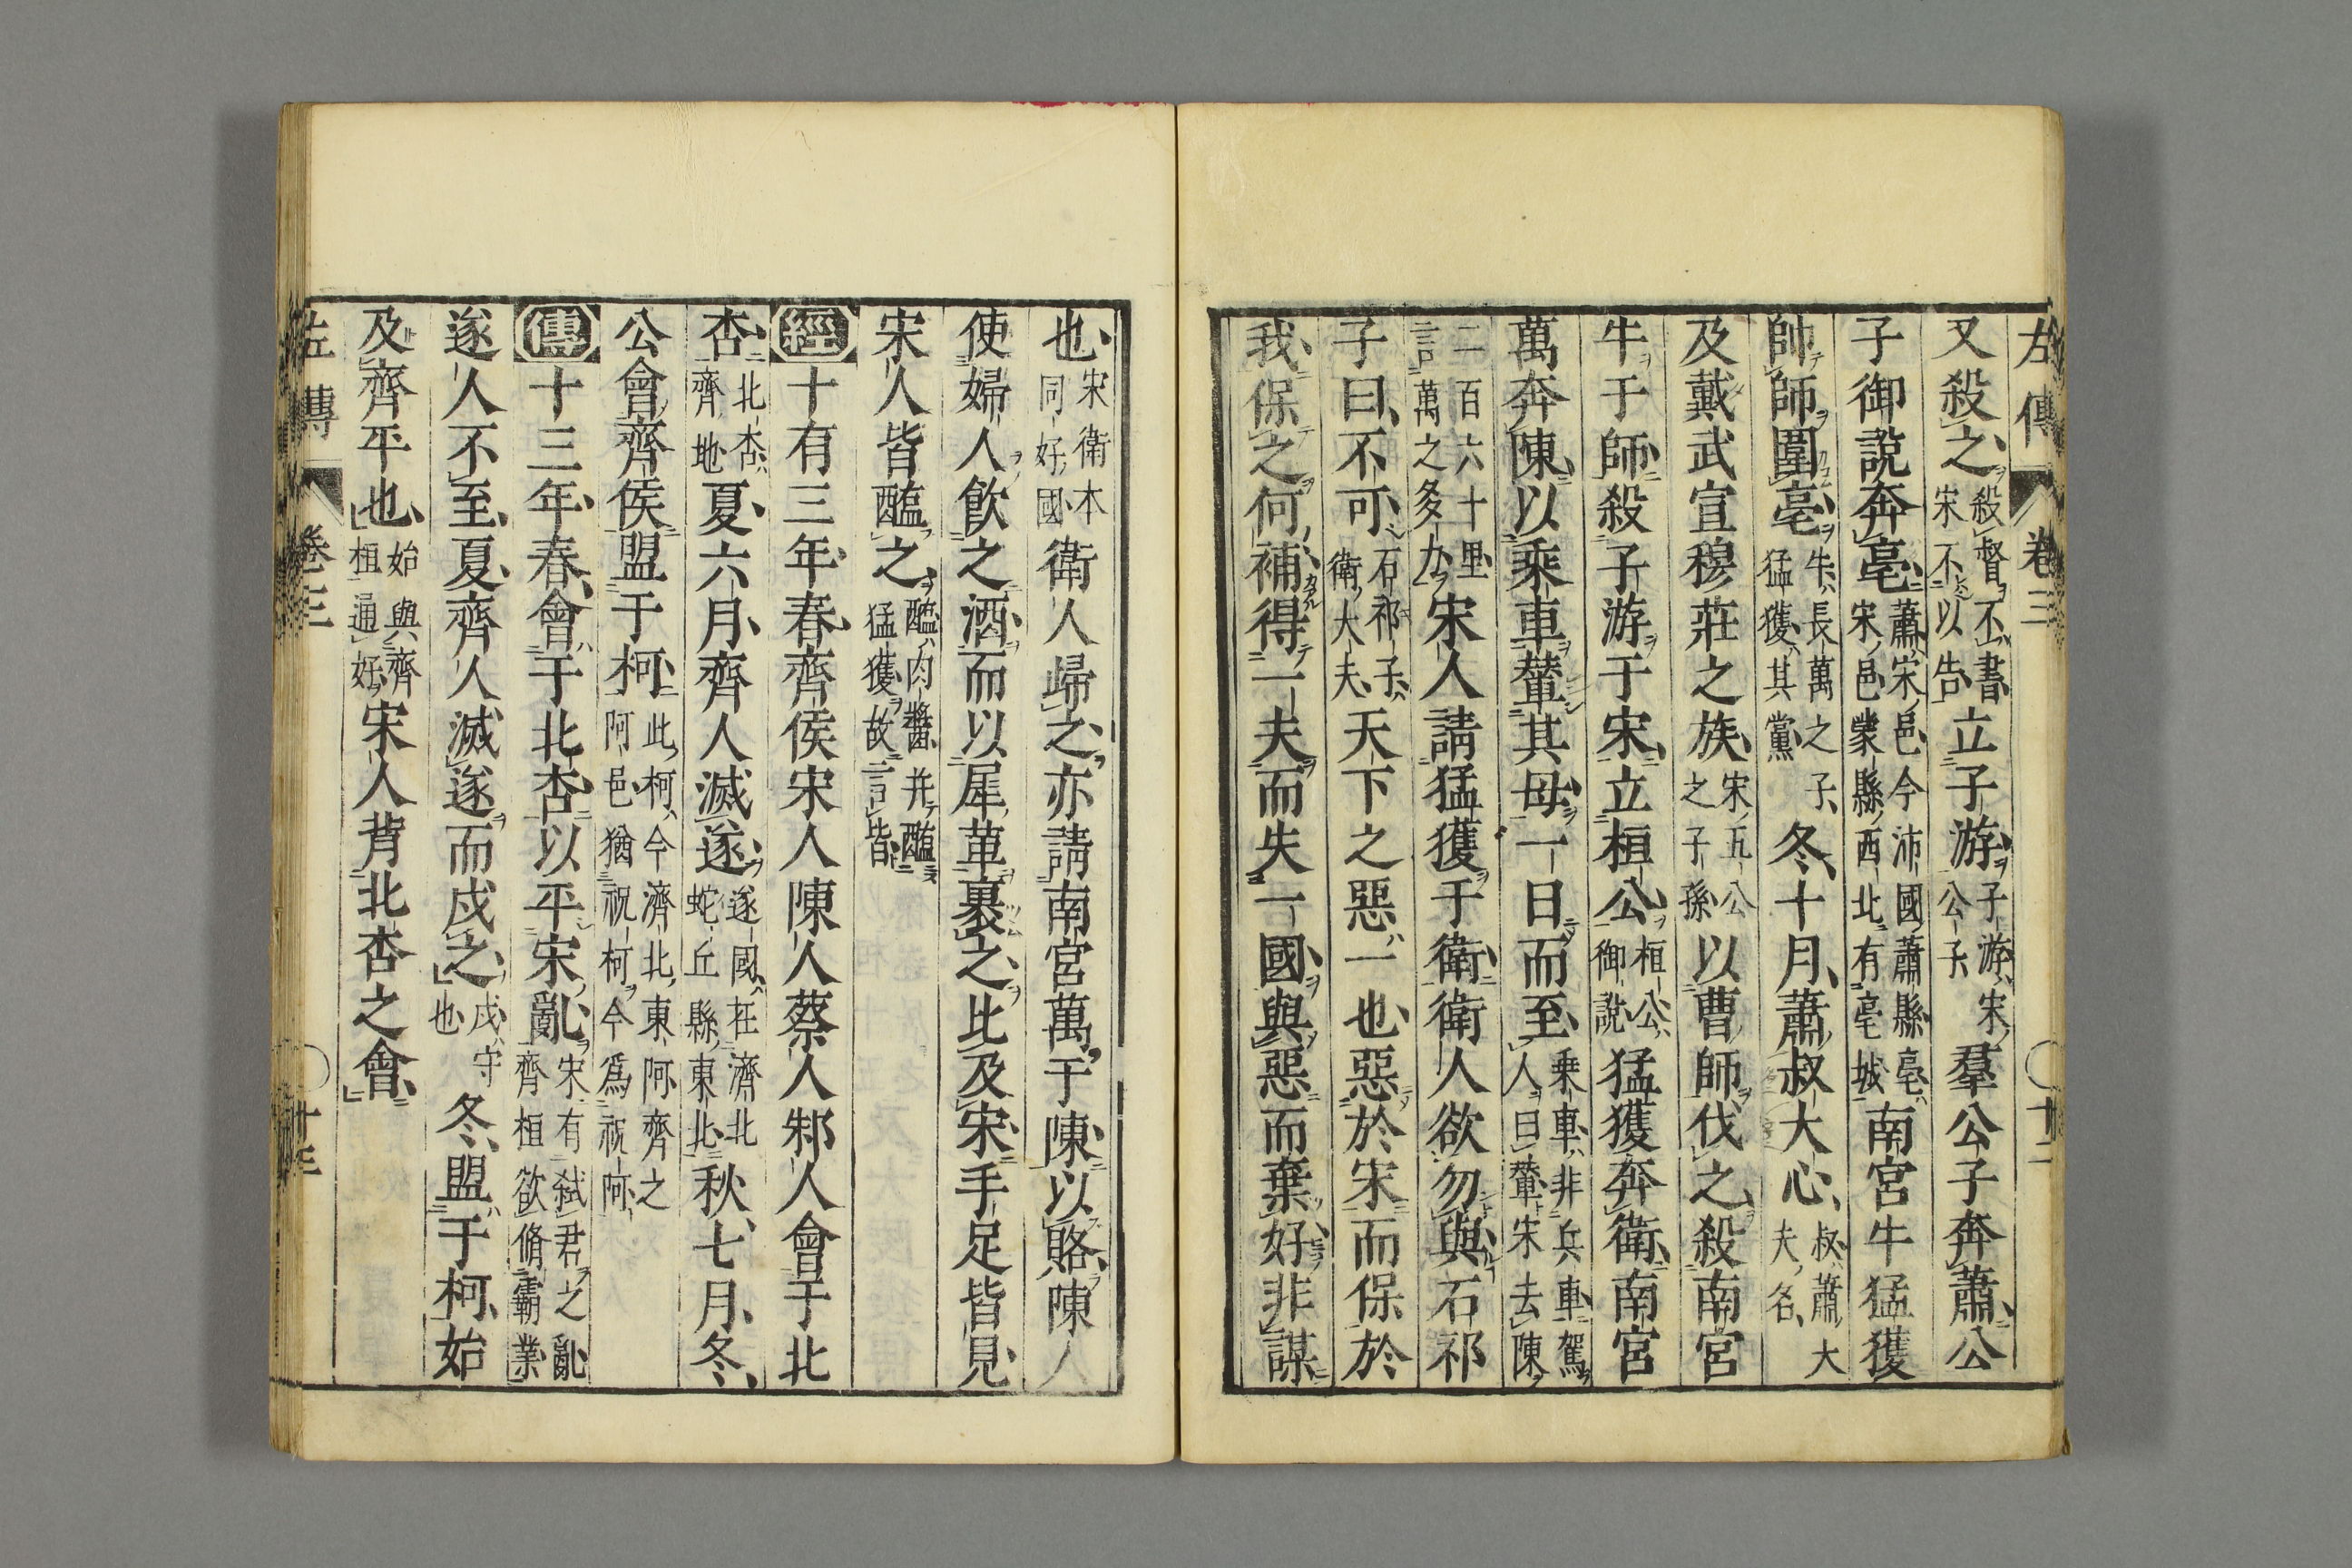 左傳 卷三 十二
又殺之殺督不書宋不以告立子游子游宋公子羣公子奔蕭公
子御說奔亳蕭宋邑今沛國蕭縣亳宋邑蒙縣西北有亳城南宮牛猛獲
帥師圍亳牛長萬之子猛獲其黨冬十月蕭叔大心叔蕭大夫名
及戴武宣穆莊之族宋五公之子孫以曹師伐之殺南宮
牛于師殺子游于宋立桓公桓公御說猛獲奔衛南宮
萬奔陳以乘車輦其母一日而至乗車非兵車駕人曰輦宋去陳
二百六十里言萬之多力宋人請猛獲于衛衛人欲勿與石祁
子曰不可石祁子衛大夫天下之惡一也惡於宋而保於
我保之何補得一夫而失一國與惡而棄好非謀
也宋衛本同好國衛人歸之亦請南宮萬于陳以賂陳人
使婦人飲之酒而以犀革裹之比及宋手足皆見
宋人皆醢之醢肉醬并醢猛獲故言皆
經十有三年春齊侯宋人陳人蔡人邾人會于北
杏北杏齊地夏六月齊人滅遂遂國在濟北蛇丘縣東北秋七月冬
公會齊侯盟于柯此柯今濟北東阿齊之阿邑猶祝柯今爲祝阿
傳十三年春會于北杏以平宋亂宋有弑君之亂齊桓欲脩霸業
遂人不至夏齊人滅遂而戍之戍守也冬盟于柯始
及齊平也始與齊桓通好宋人背北杏之會
左傳 卷三 十三